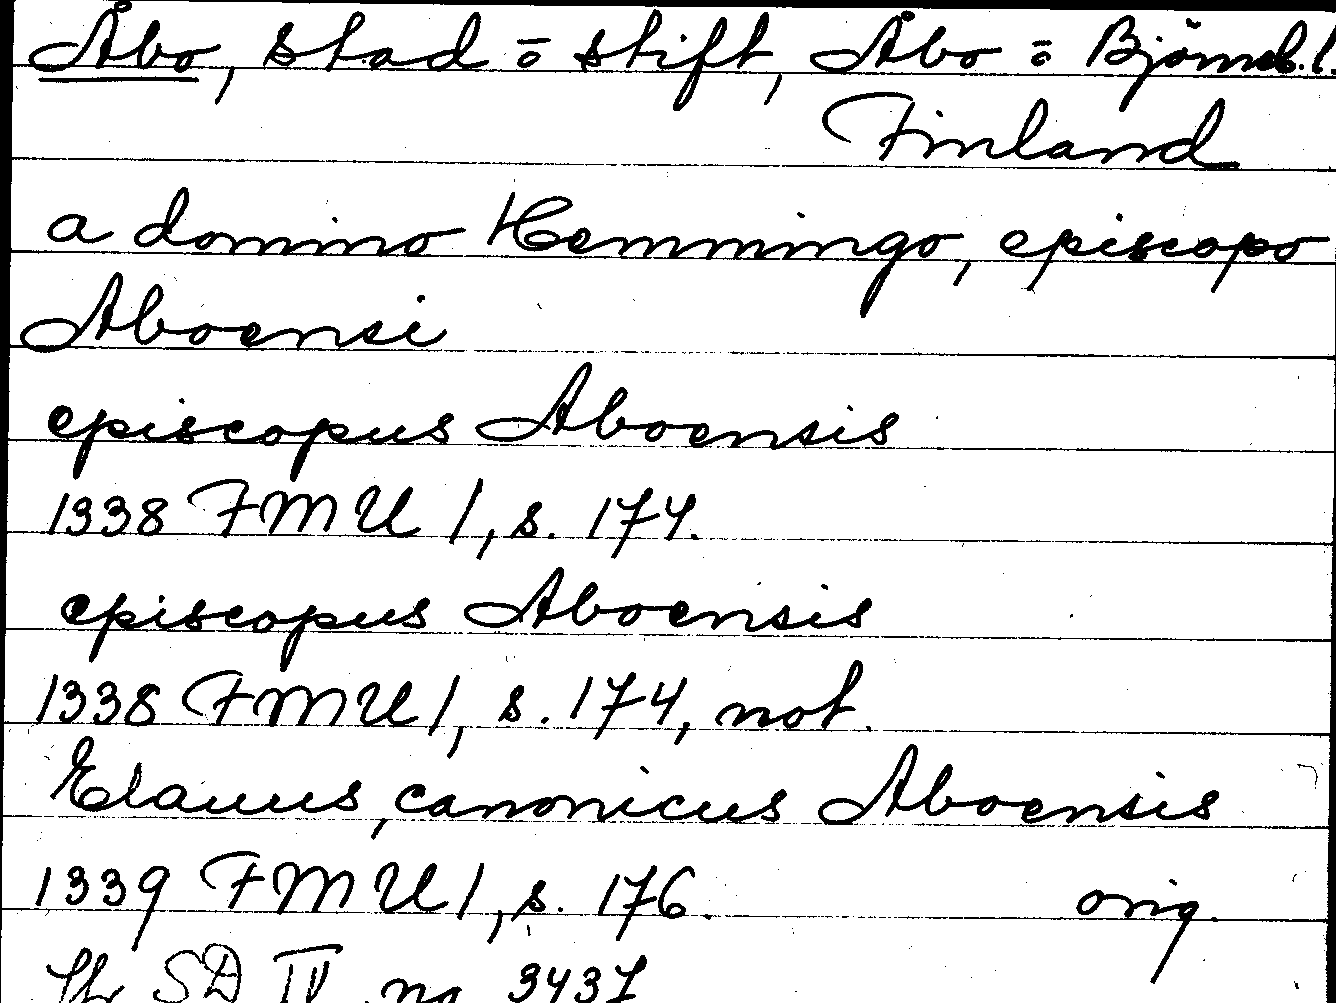 Åbo, stad o̅ stift, Åbo o̅ Björneb. l.
Finland
a domino Hemmingo, episcopo
Aboensi
episcopus Aboensis
1338 FMU 1, s. 174.
episcopus Aboensis
1338 FMU 1, s. 174, not.
Elauus, canonicus Aboensis
1339 FMU 1, s. 176. orig.
SD IV no 3437